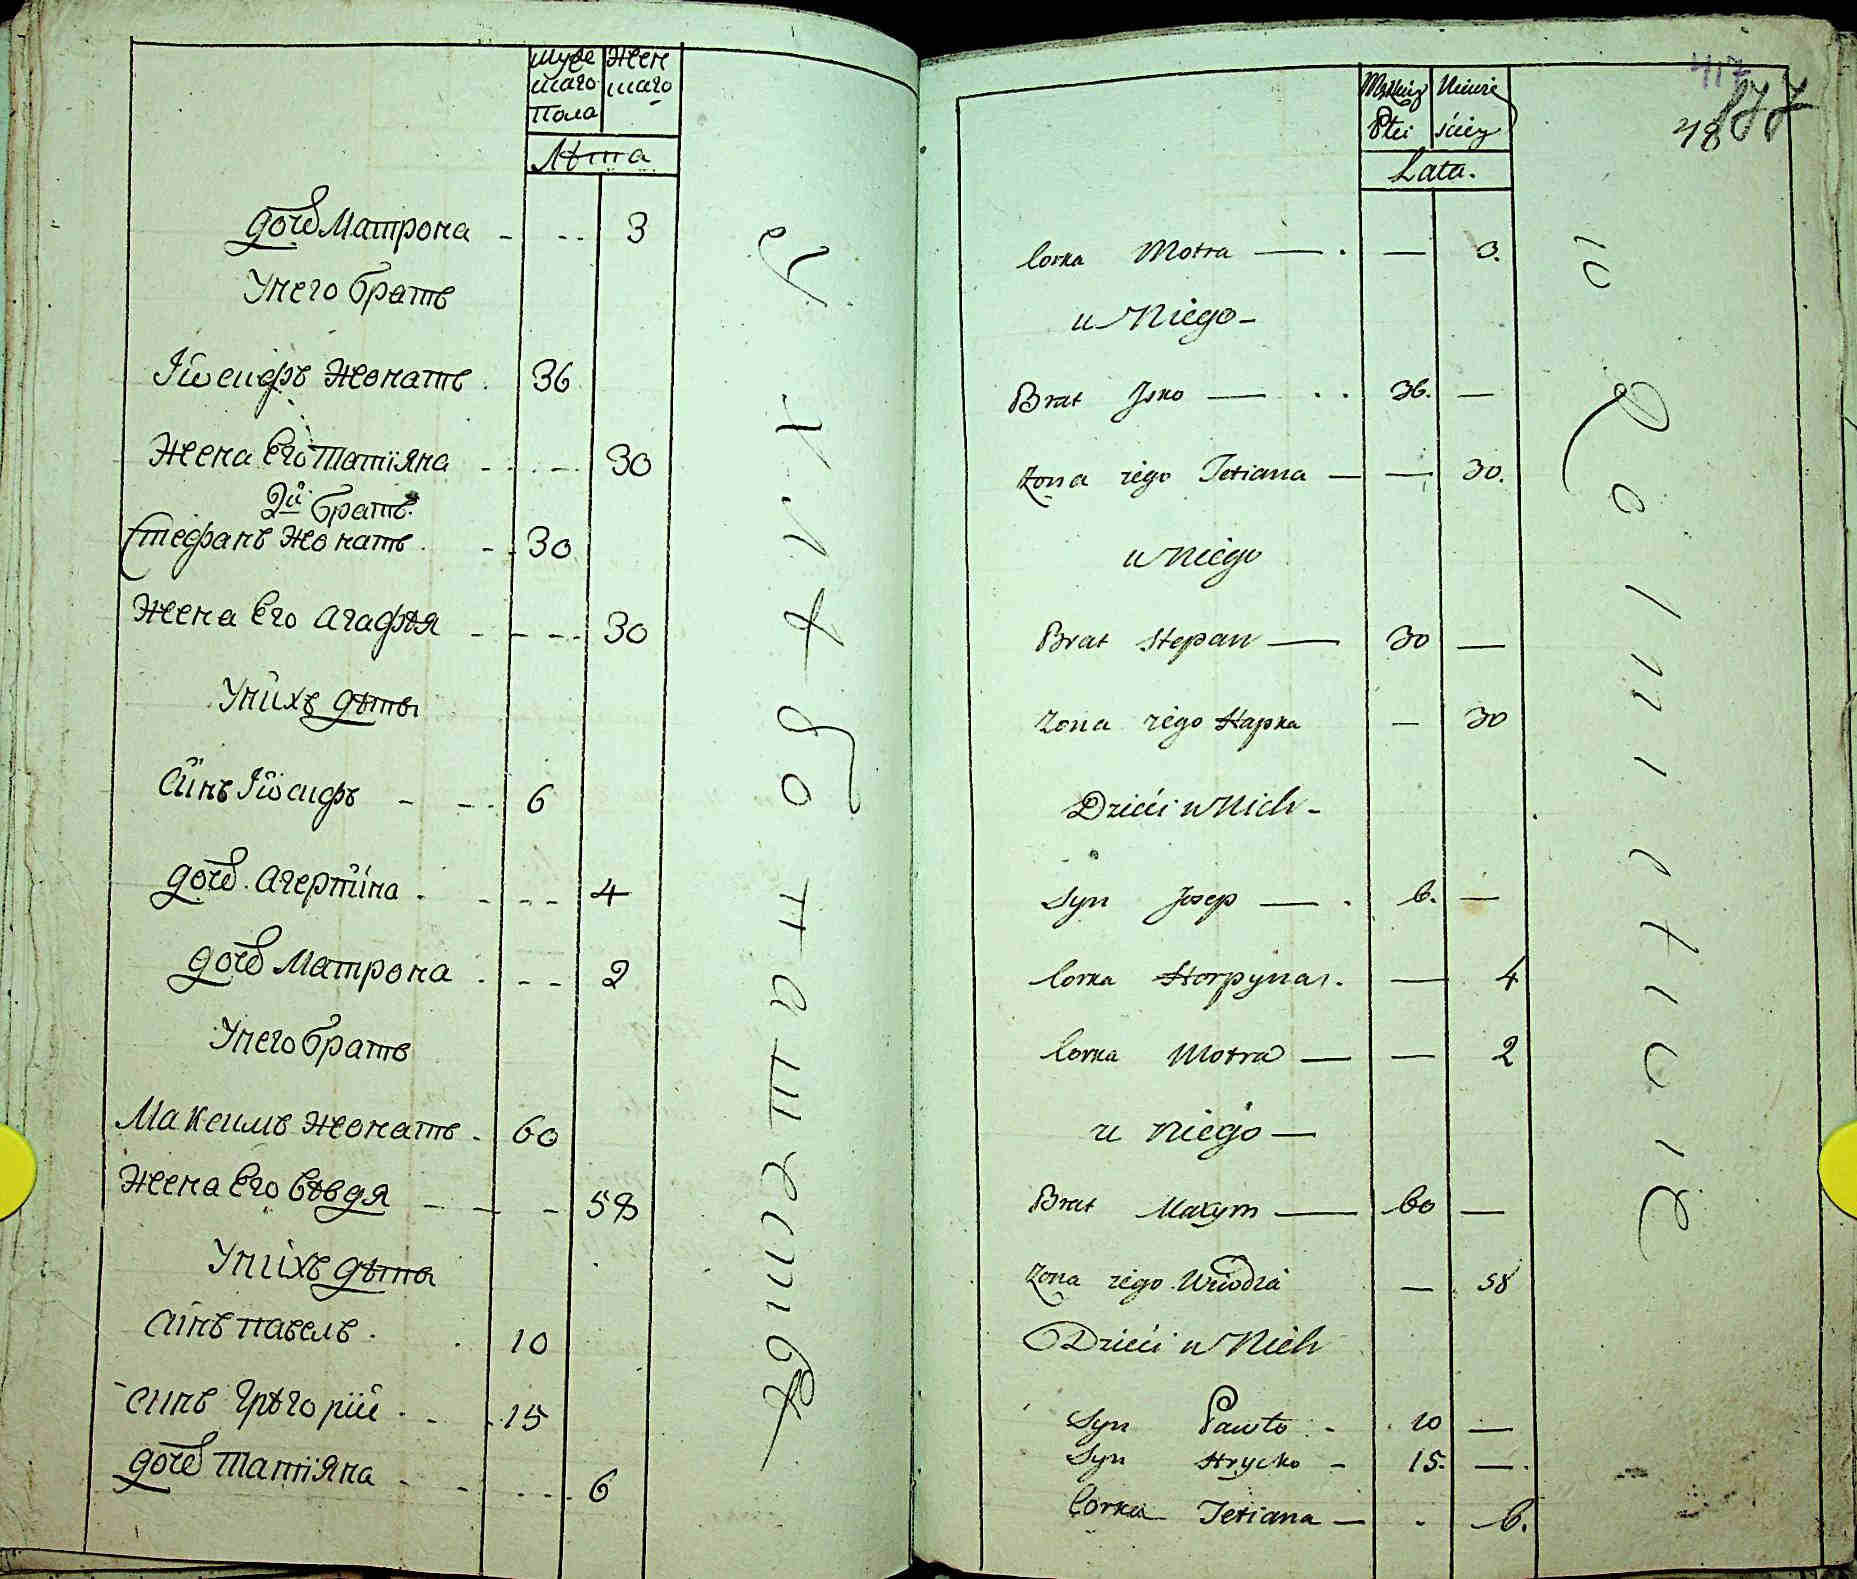 муже Жен
скаго скаго
пола
Лѣта
дочь Матрона - - - 3
Унего братъ
Іѡсифъ женатъ . 36
Жена Его Татіяна - - - 30
2й братъ.
Стефанъ женатъ . - - 30
Жена Его Агафѣя - - - - 30
Унихъ дѣты
Синъ Іѡсифъ - - - 6
дочь Агерпіна . - - - 4
дочь Матрона . - - 2
Унего братъ
Максимъ женатъ . 60
Жена Его Евдя - - - 58
Унихъ дѣты
Синъ павелъ . 10
синъ Грѣгорій . - . 15
дочь Татіяна - - - - - 6
417
48 877
Męskiey
Płci
Lata.
Corka Motra — . — 3.
u Niego -
Brat Jsko — . . 36. —
Zona iego Tetiana — — 30.
u Niego
Brat Stepan — 30 —
Zona iego Hapka — 30
Dzieci u Nich -
Syn Josep — . 6. —
Corka Horpyna . — 4
Corka Motra — — 2
u Niego —
Brat Maxym — 60 —
Zona iego — 58
Dzieci u Nich
Syn Pawło - 10 —
Syn Hrycko - 15. — .
Corka Tetiana — . 6.